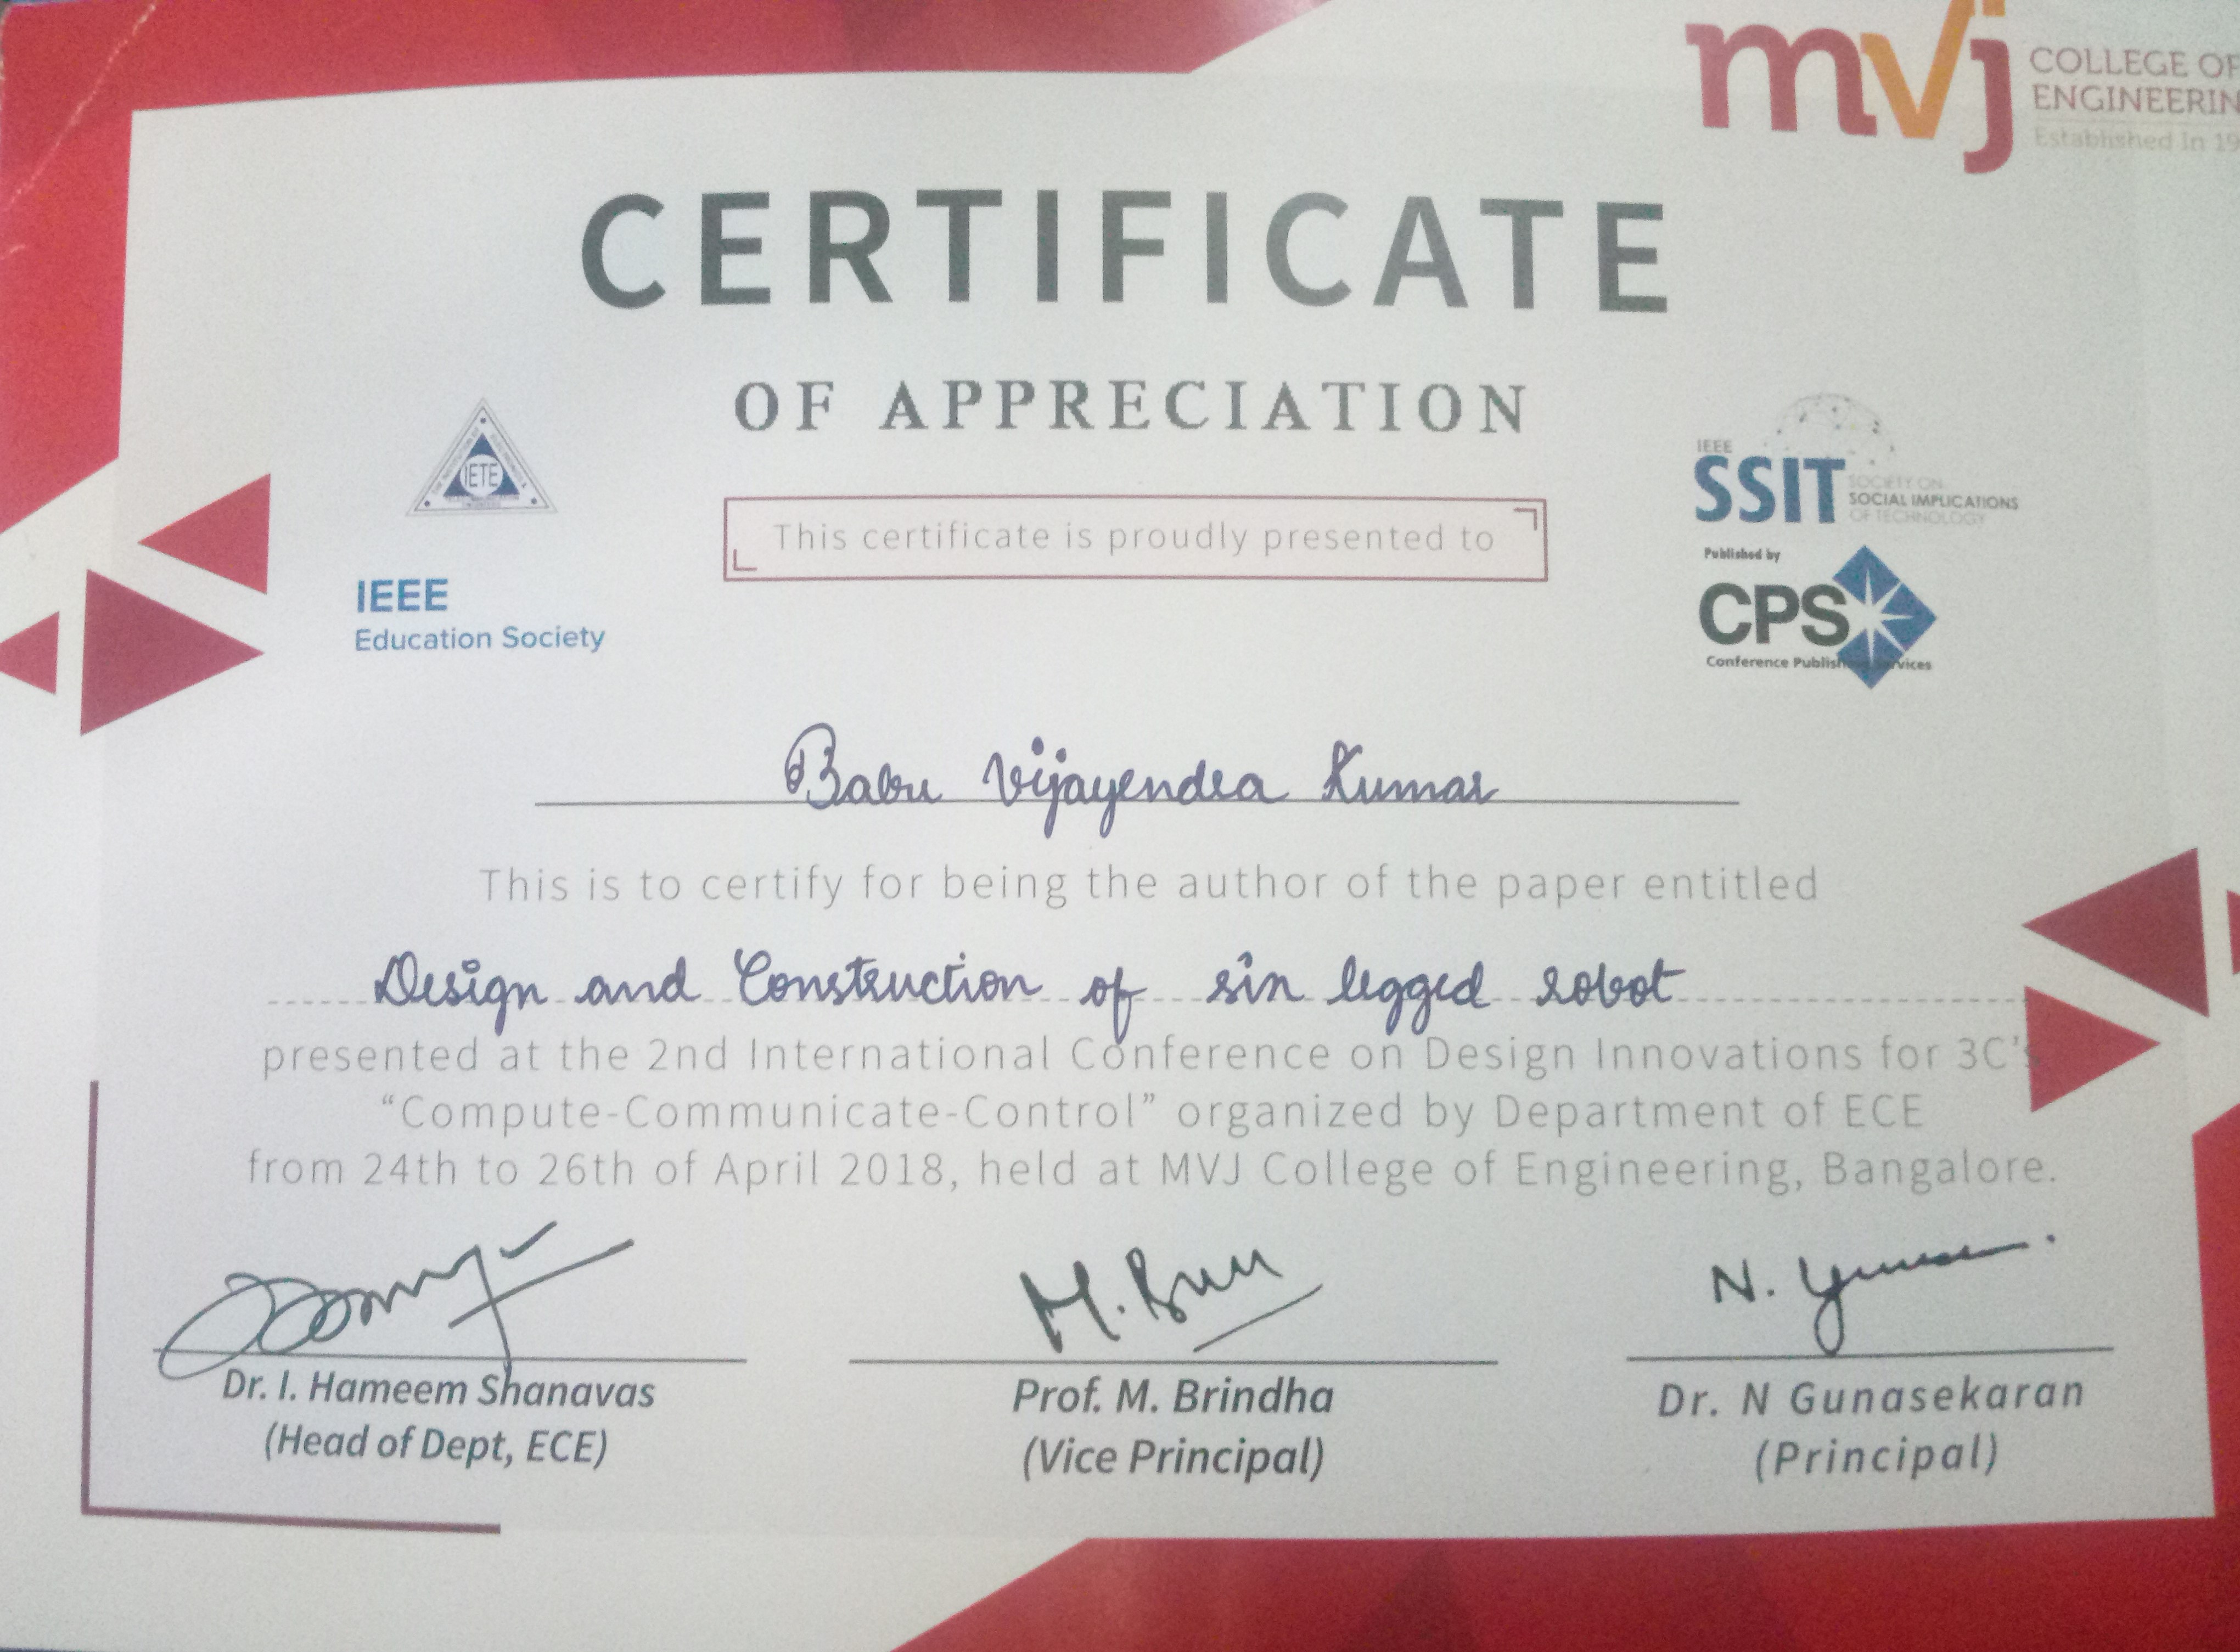 mvj COLLEGE OF
ENGINEERIN
Established In 19
CERTIFICATE
OF APPRECIATION
IETE
IEEE
SSIT
SOCIETY ON
SOCIAL IMPLICATIONS
OF TECHNOLOGY
This certificate is proudly presented to
IEEE
Education Society
Published by
CPS
Conference Publishing Services
Babu Vijayendra Kumar
This is to certify for being the author of the paper entitled
Design and Construction of six legged robot
presented at the 2nd International Conference on Design Innovations for 3C's
“Compute-Communicate-Control” organized by Department of ECE
from 24th to 26th of April 2018, held at MVJ College of Engineering, Bangalore.
Dr. I. Hameem Shanavas
(Head of Dept, ECE)
Prof. M. Brindha
(Vice Principal)
Dr. N Gunasekaran
(Principal)